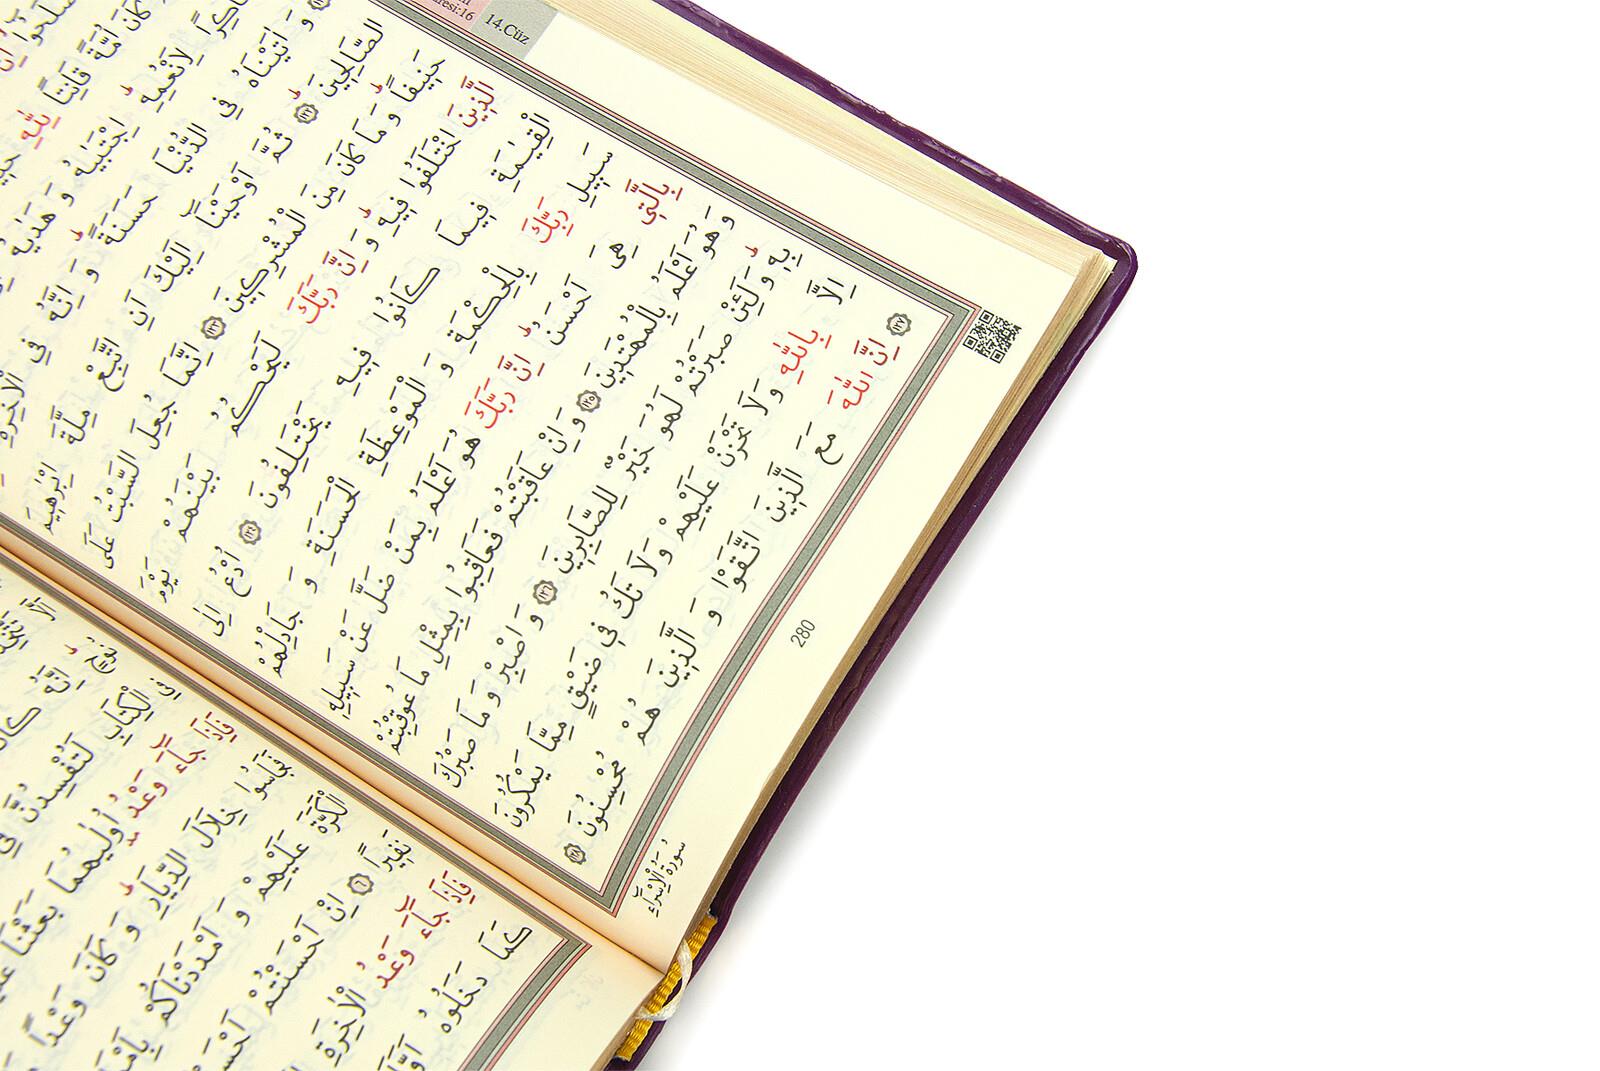 14.Cüz
كَانَ اُمَّةً قَانِتًا لِلّٰهِ
لِاَنْعُمِهِ اِجْتَبٰيهُ وَهَدٰيهُ
وَاٰتَيْنَاهُ فِى الدُّنْيَا حَسَنَةً وَاِنَّهُ فِى الْاٰخِرَةِ
الصَّالِحِينَ ١٢٢ ثُمَّ اَوْحَيْنَا اِلَيْكَ اَنِ اتَّبِعْ مِلَّةَ اِبْرٰهِيمَ
حَنِيفًا وَمَا كَانَ مِنَ الْمُشْرِكِينَ ١٢٣ اِنَّمَا جُعِلَ السَّبْتُ عَلَى
الَّذِينَ اخْتَلَفُوا فِيهِ وَاِنَّ رَبَّكَ لَيَحْكُمُ بَيْنَهُمْ يَوْمَ
الْقِيٰمَةِ فِيمَا كَانُوا فِيهِ يَخْتَلِفُونَ ١٢٤ اُدْعُ اِلٰى
سَبِيلِ رَبِّكَ بِالْحِكْمَةِ وَالْمَوْعِظَةِ الْحَسَنَةِ وَجَادِلْهُمْ
بِالَّتِى هِىَ اَحْسَنُ اِنَّ رَبَّكَ هُوَ اَعْلَمُ بِمَنْ ضَلَّ عَنْ سَبِيلِهِ
وَهُوَ اَعْلَمُ بِالْمُهْتَدِينَ ١٢٥ وَاِنْ عَاقَبْتُمْ فَعَاقِبُوا بِمِثْلِ مَا عُوقِبْتُمْ
بِهِ وَلَئِنْ صَبَرْتُمْ لَهُوَ خَيْرٌ لِلصَّابِرِينَ ١٢٦ وَاصْبِرْ وَمَا صَبْرُكَ
اِلَّا بِاللّٰهِ وَلَا تَحْزَنْ عَلَيْهِمْ وَلَا تَكُ فِى ضَيْقٍ مِمَّا يَمْكُرُونَ
١٢٧ اِنَّ اللّٰهَ مَعَ الَّذِينَ اتَّقَوْا وَالَّذِينَ هُمْ مُحْسِنُونَ ١٢٨
280
سُورَةُ الْاِسْرَاءِ
الْكِتَابِ لَتُفْسِدُنَّ فِى
فَاِذَا جَاءَ وَعْدُ اُولٰيهُمَا بَعَثْنَا
فَجَاسُوا خِلَالَ الدِّيَارِ وَكَانَ وَعْدًا
الْكَرَّةَ عَلَيْهِمْ وَاَمْدَدْنَاكُمْ
نَفِيرًا ٦ اِنْ اَحْسَنْتُمْ
فَاِذَا جَاءَ وَعْدُ الْاٰخِرَةِ
كَمَا دَخَلُوهُ